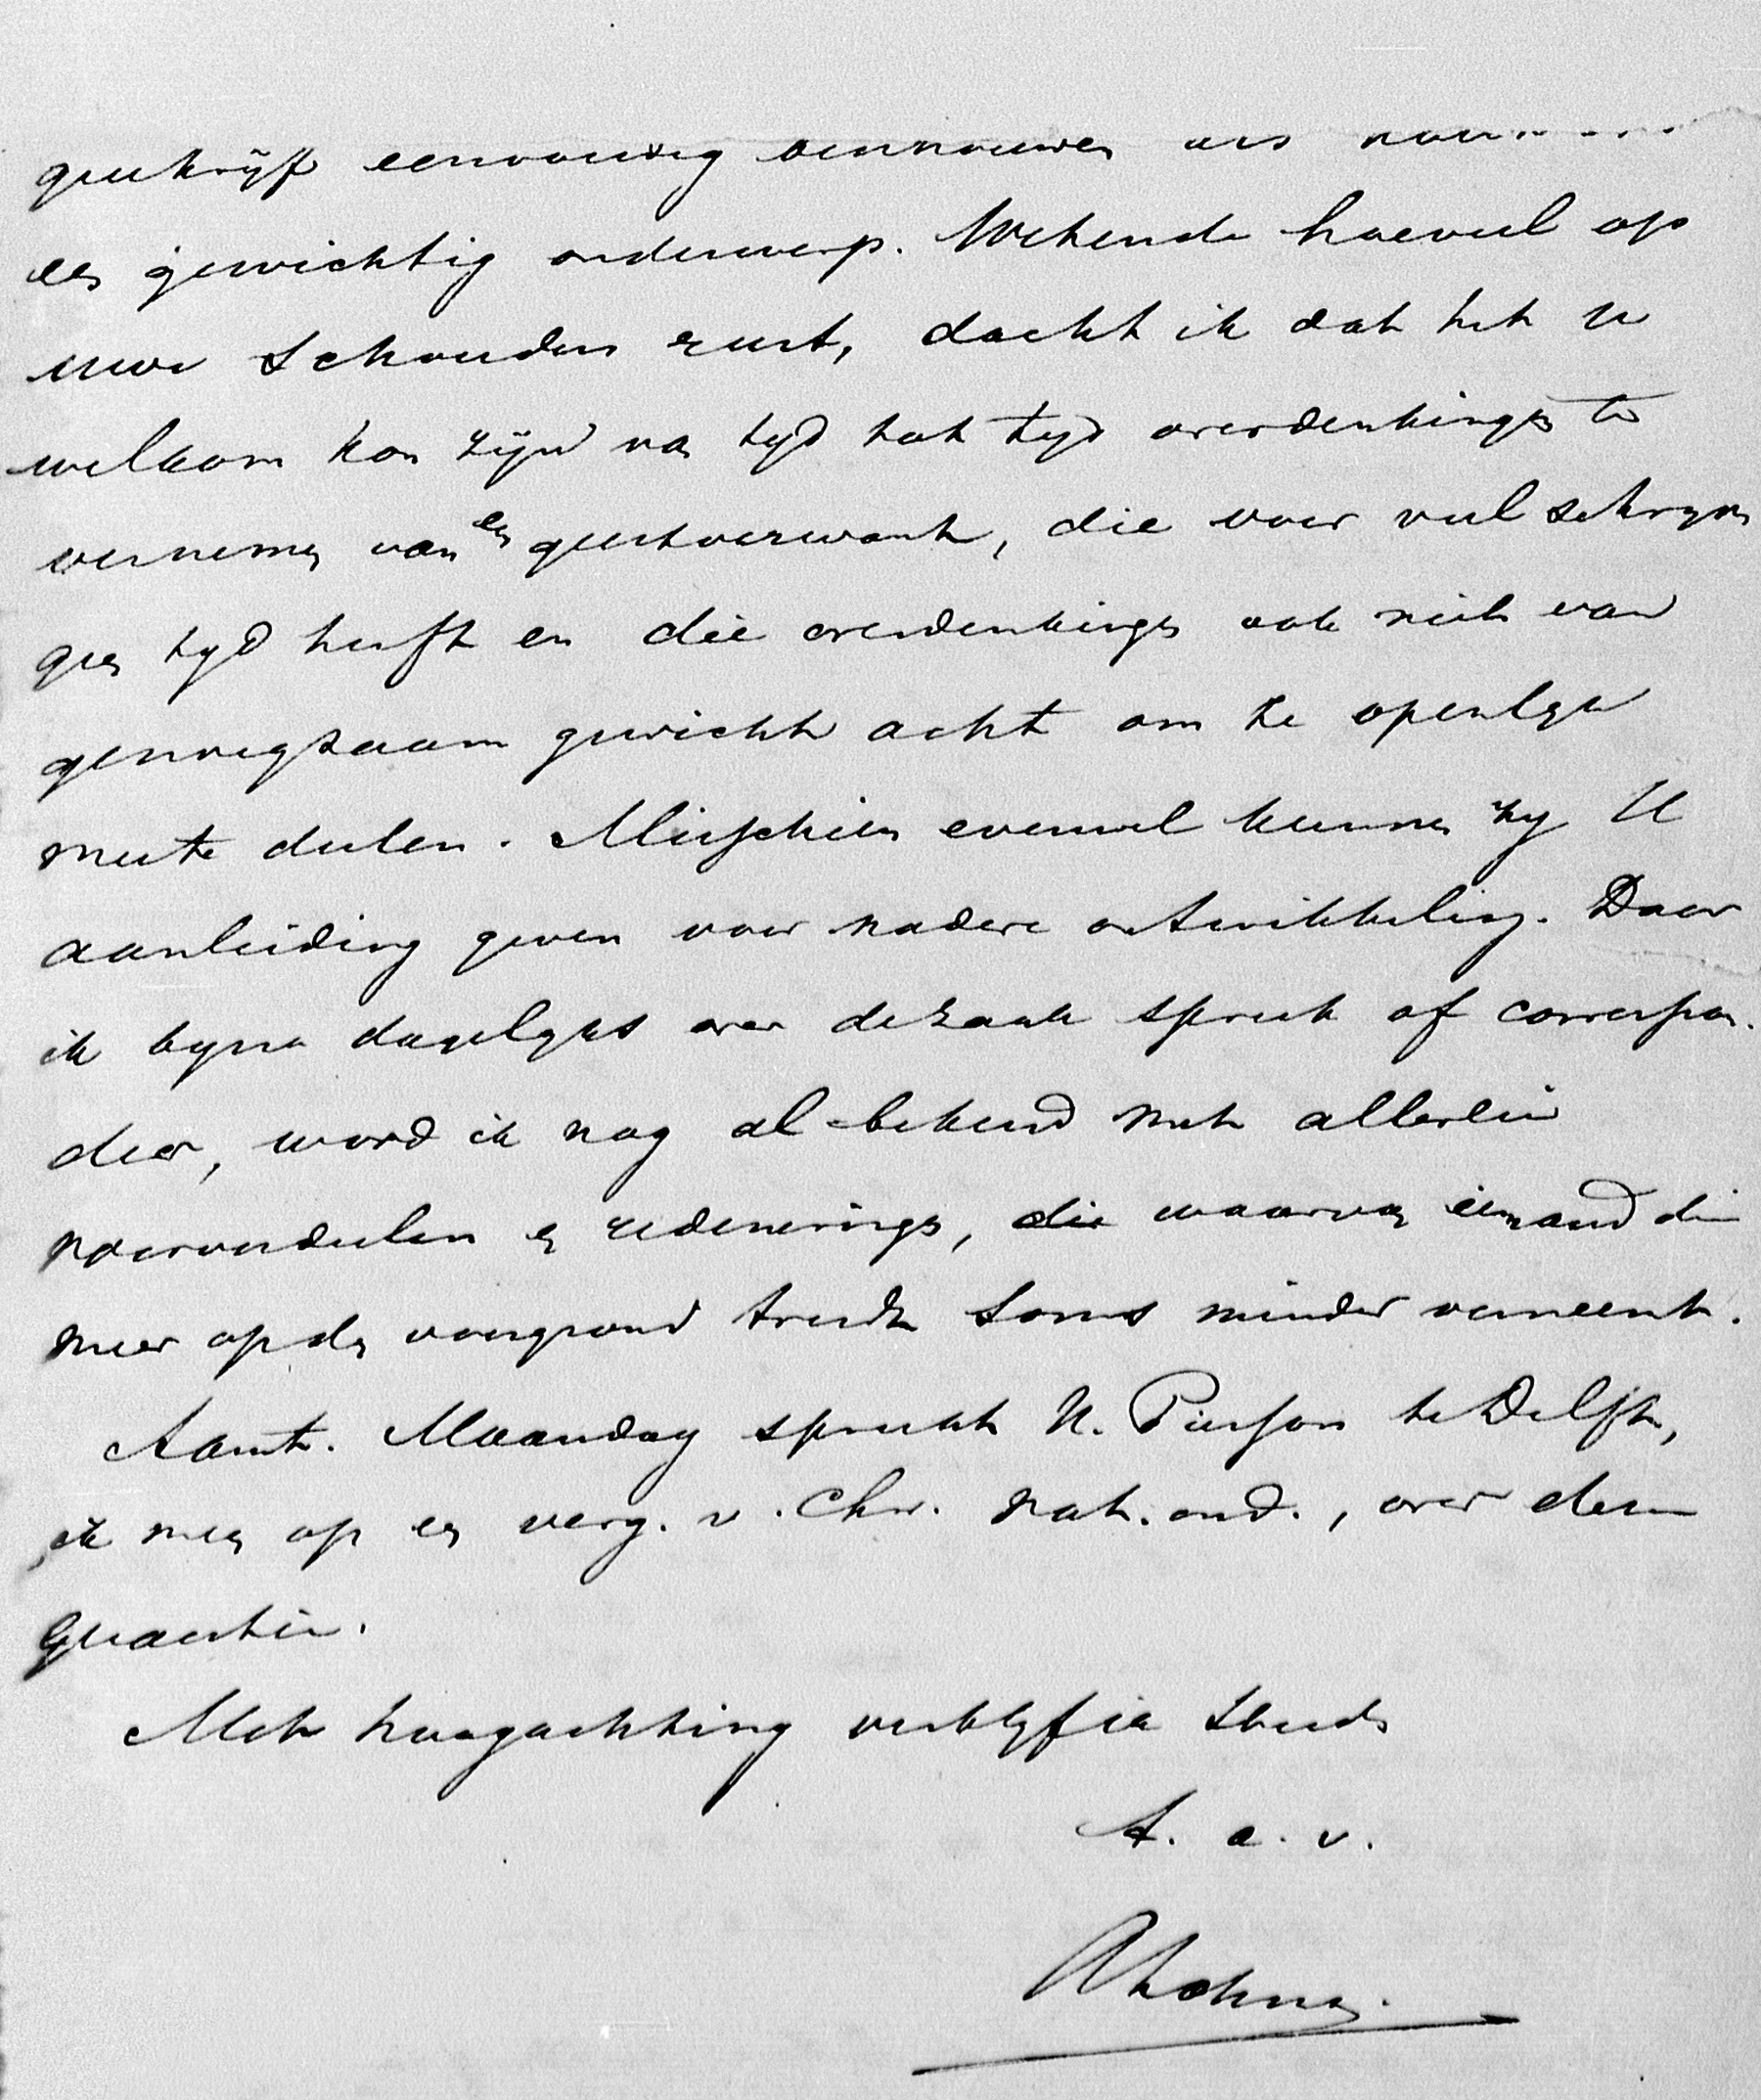 geschrijf eenvoudig beschouwen als
een gewichtig onderwerp. Wetende hoeveel op
uwe schouders rust, dacht ik dat het U
welkom kon zijn van tyd tot tyd overdenkingen te
vernemen van een geestverwant, die voor veel schryven
geen tyd heeft en die overdenkingen ook niet van
genoegzaam gewicht acht om ze openlyk
mee te deelen. Misschien evenwel kunnen zy U
aanleiding geven voor nadere ontwikkeling. Daar
ik byna dagelyks over de zaak spreek of correspon-
deer, word ik nog al bekend met allerlei
vooroordeelen en redeneringen, die waarvan iemand die
meer op den voorgrond treedt soms minder verneemt.
Aanst. Maandag spreekt H. Pierson te Delft,
ik meen op een verg. v. Chr. Nat. ond., over deze
quaestie.
Met hoogachting verblyf ik steeds
t. a. v.